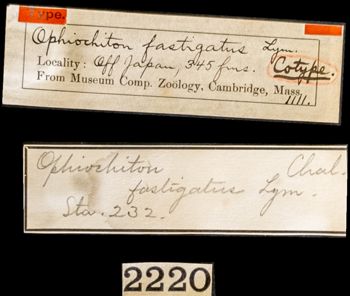 Type.
Ophiochiton fastigatus Lym.
Locality: Off Japan, 345 fms. Cotype.
From Museum Comp. Zoology, Cambridge, Mass.
1111.
Ophiochiton Chal.
fastigatus Lym.
Sta. 232.
2220